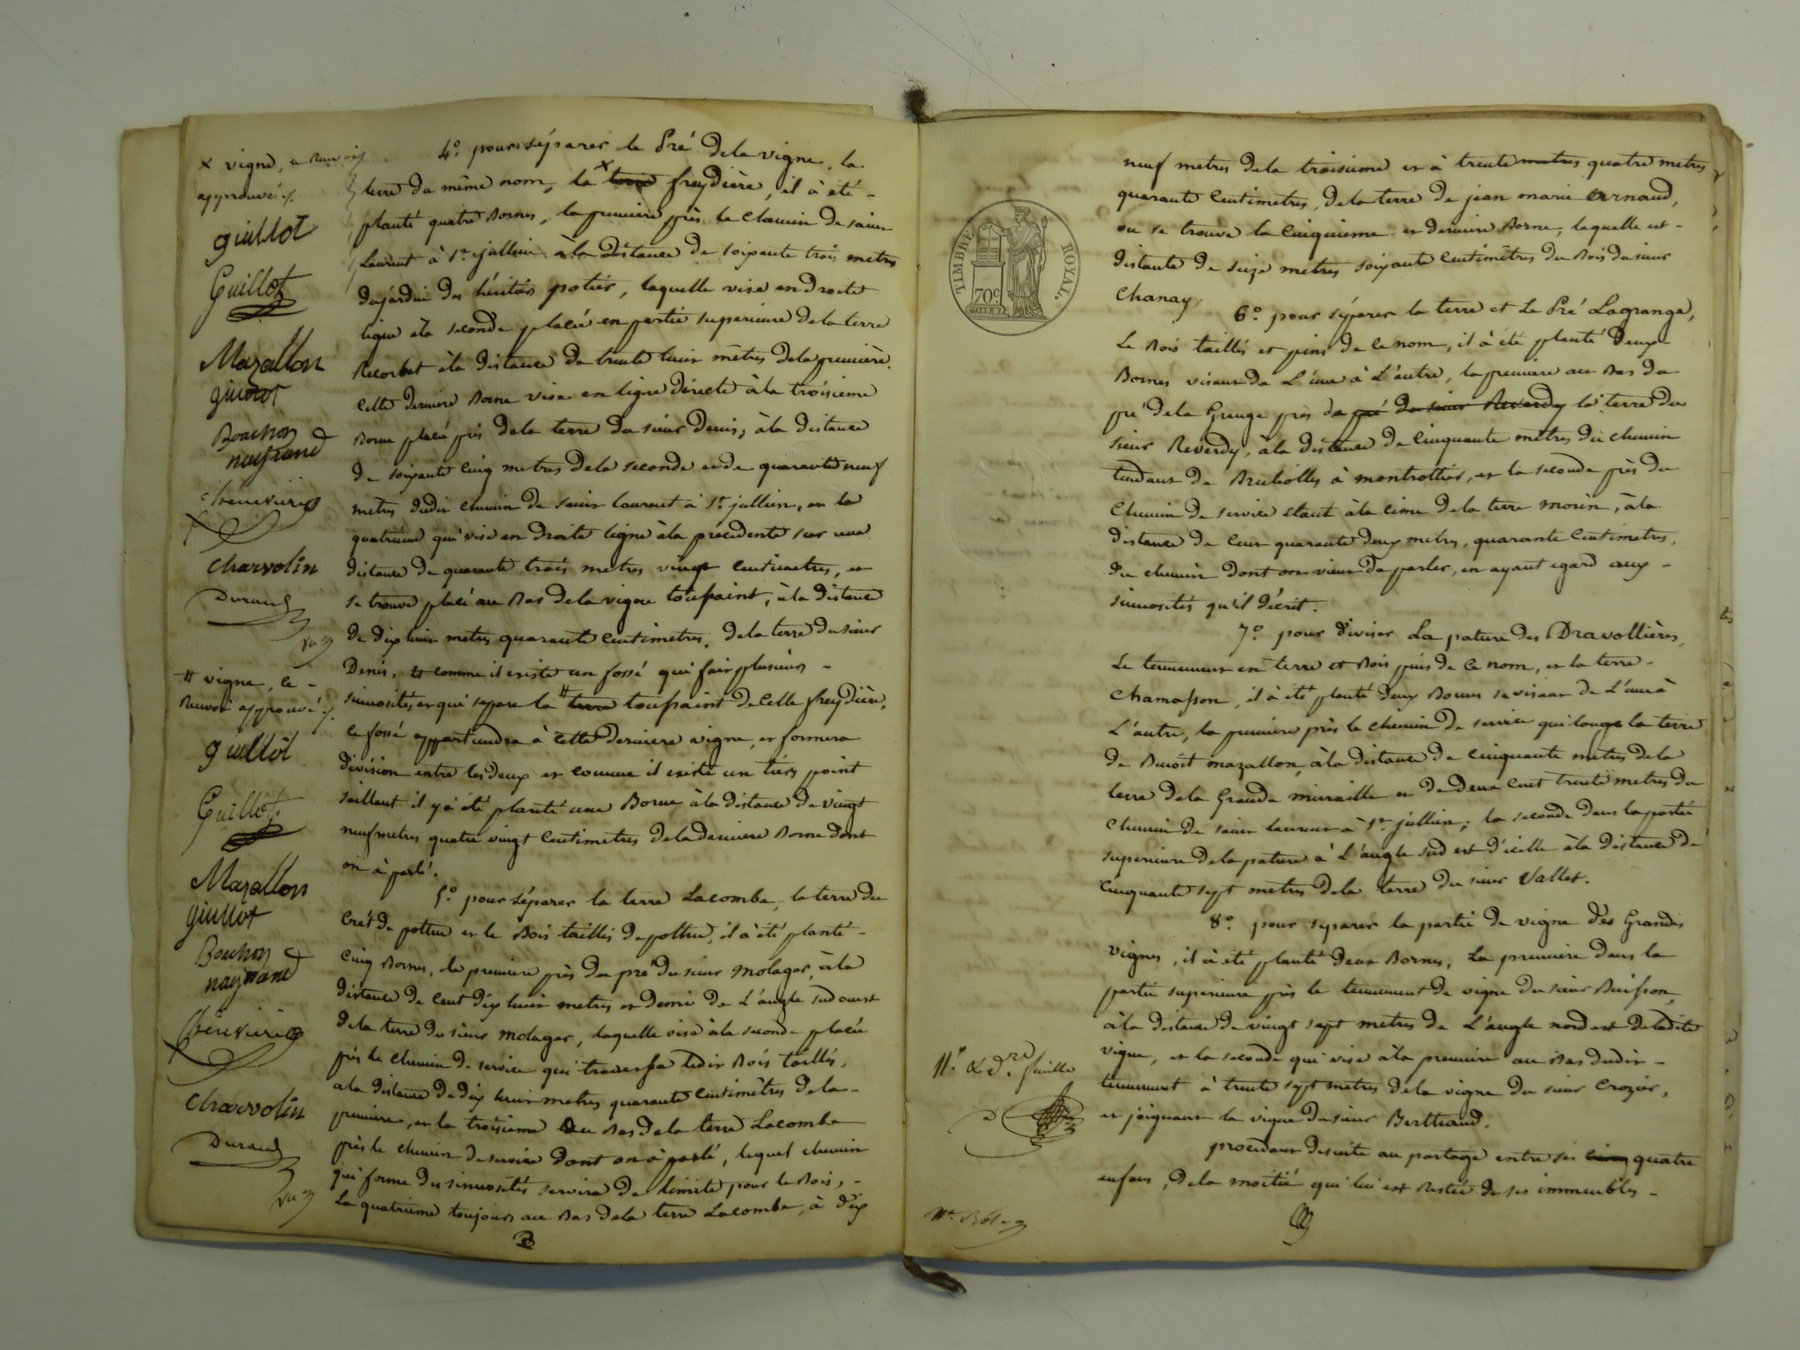 x vigne, ce Renvoi
approuvé ./.
guillot
Guillot
Mazallon
guillot
Bouchon
naysrand
chenevière
charvolin
Durand
# vigne, ce -
Renvoi approuvé ./.
guillot
Guillot
Mazallon
guillot
Bouchon
naysrand
Chenevière
charvolin
Durand
4.° pour séparer le Pré de la vigne, la
terre du même nom, la x terre freydière, il à été -
planté quatre Bornes, la première près le chemin de saint
Laurent à St. jullien à la distance de soixante trois metres
du jardin des héritiers potier, laquelle vise en droite
ligne à la seconde placée en partie superieure de la terre
Recorbet à la distance de trente huit mètres de la première.
Cette derniere Borne vise en ligne directe à la troisieme
Borne placée près de la terre du sieur Denis, à la distance
de soixante cinq metres de la seconde et de quarante neuf
metres dudit chemin de saint laurent à St. jullien, et la
quatrieme qui vise en droite ligne à la precedente sur une
distance de quarante trois metres vingt centimetres, et
se trouve placé au Bas de la vigne toussaint, à la distance
de dix huit metres quarante centimetres, de la terre du sieur
Denis, et comme il existe un fossé qui fait plusieurs -
sinuosités, et qui separe la # terre toussaint de celle freydière,
ce fossé appartiendra à cette derniere vigne, et formera
division entre les deux et comme il existe un tiers point
saillant il y à été planté une Borne à la distance de vingt
neuf metres quatre vingt centimetres de la derniere Borne dont
on à parlé.
5.° pour séparer la terre Lacombe, la terre du
Crêt de pottu et le Bois taillis de pottu, il à été planté -
cinq Bornes, la premiere près du pré du sieur molager, à la
distance de cent dix huit metres et demi de L'angle sud ouest
de la terre du sieur molager, laquelle vise à la seconde placée
près le chemin de service qui traverse ledit Bois taillis,
à la distance de dix huit metres quarante centimètres de la -
premiere, et la troisieme au Bas de la terre Lacombe
près le chemin de service dont on à parlé, lequel chemin
qui forme des sinuosités servira de limite pour le Bois, -
La quatrieme toujours au Bas de la terre Lacombe, à dix
TIMBRE ROYAL.
70c
11.e & d.re feuille
neuf metres de la troisieme et à trente metres quatre metres
quarante centimetres, de la terre de jean marie Arnaud,
ou se trouve la cinquieme et derniere Borne, laquelle est -
distante de seize metres soixante centimètres du Bois du sieur
Chanay.
6.° pour séparer la terre et Le Pré Lagrange,
Le Bois taillis et pins de ce nom, il à été planté deux
Bornes visant de L'une à L'autre, la premiere au Bas du
pré de la Grange près de pré du sieur Reverdy la terre du
sieur Reverdy, à la distance de cinquante metres du chemin
tendant de Brulliolles à montrottier, et la seconde près du
chemin de service étant à la cime de la terre morin, à la
distance de cent quarante deux metres, quarante centimetres,
du chemin dont on vient de parler, en ayant egard aux -
sinuosités qu'il décrit.
7.° pour diviser La pature des Dravollières,
Le tennement en terre et Bois pins de ce nom, et la terre -
chamasson, il à été planté deux Bornes se visant de L'une à
L'autre, la premiere près le chemin de service qui longe la terre
de Benoit mazallon, à la distance de cinquante metres de la
terre de la Grande muraille et de deux cent trente metres du
chemin de saint laurent à St. jullien; la seconde dans la partie
superieure de la pature à L'angle sud est d'icelle à la distance de
cinquante sept metres de la terre du sieur Vallet.
8.° pour separer la partie de vigne des Grandes
vignes, il à été planté deux Bornes, La premiere dans la
partie superieure près le tennement de vigne du sieur Buisson,
à la distance de vingt sept metres de L'angle nord est de ladite
vigne, et la seconde qui vise à la premiere au Bas dudit -
tennement à trente sept metres de la vigne du sieur Crozier,
et joignant la vigne du sieur Berthaud.
procedant desuite au partage entre ses cinq quatre
enfans, de la moitié qui lui est Restée de ses immeubles -